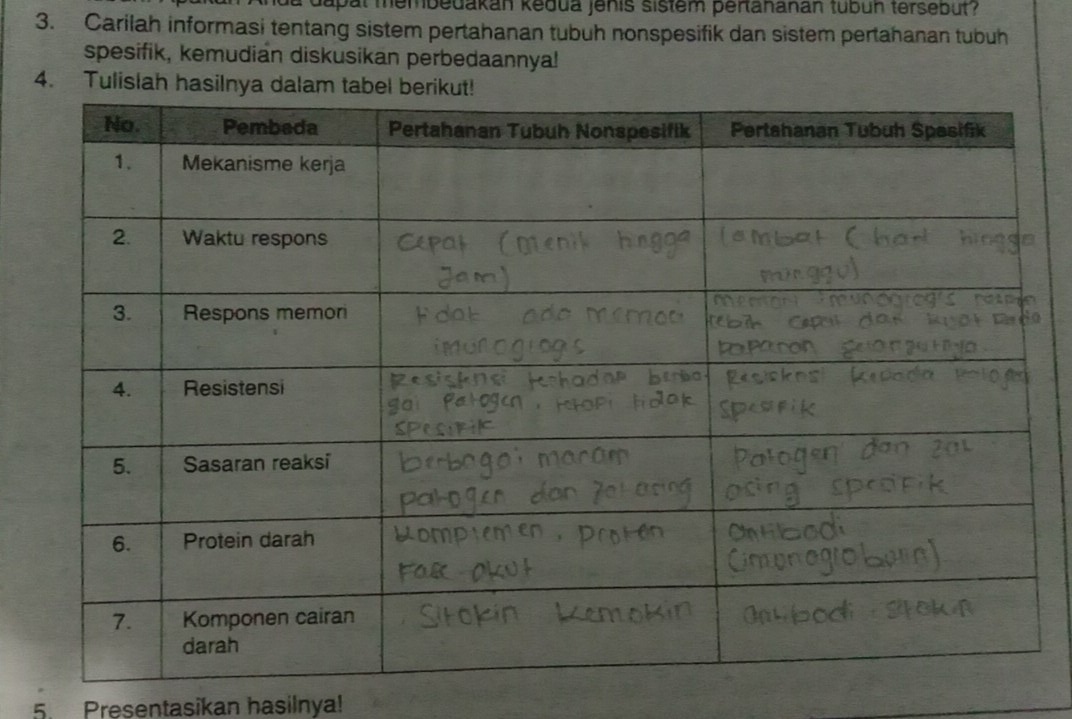 Apakah Anda dapat membedakan kedua jenis sistem pertahanan tubuh tersebut?
3. Carilah informasi tentang sistem pertahanan tubuh nonspesifik dan sistem pertahanan tubuh
spesifik, kemudian diskusikan perbedaannya!
4. Tulislah hasilnya dalam tabel berikut!
No. Pembeda Pertahanan Tubuh Nonspesifik Pertahanan Tubuh Spesifik
1. Mekanisme kerja
2. Waktu respons
cepat (menit hingga
Jam)
lambat (hari hingga
minggu)
3. Respons memori
tidak ada memori
imunologis
memori imunologis
lebih cepat dan kuat pada
paparan selanjutnya
4. Resistensi
Resistensi terhadap berba
gai patogen, tetapi tidak
spesifik
Resistensi kepada patogen
spesifik
5. Sasaran reaksi
berbagai macam
patogen dan zat asing
patogen dan zat
asing spesifik
6. Protein darah
komplemen, protein
Fase akut
antibodi
(imonoglobulin)
7. Komponen cairan
darah
Sitokin kemokin
antibodi, sitokin
5. Presentasikan hasilnya!